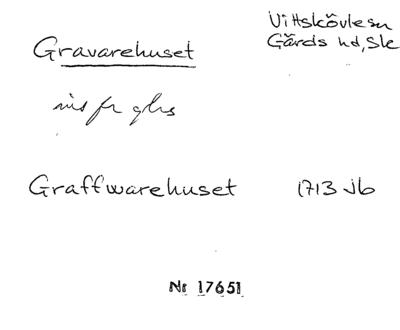 Gravarehuset
Vittskövle sn
Gärds hd, Sk
Graffwarehuset 1713 Jb
Nr 17651